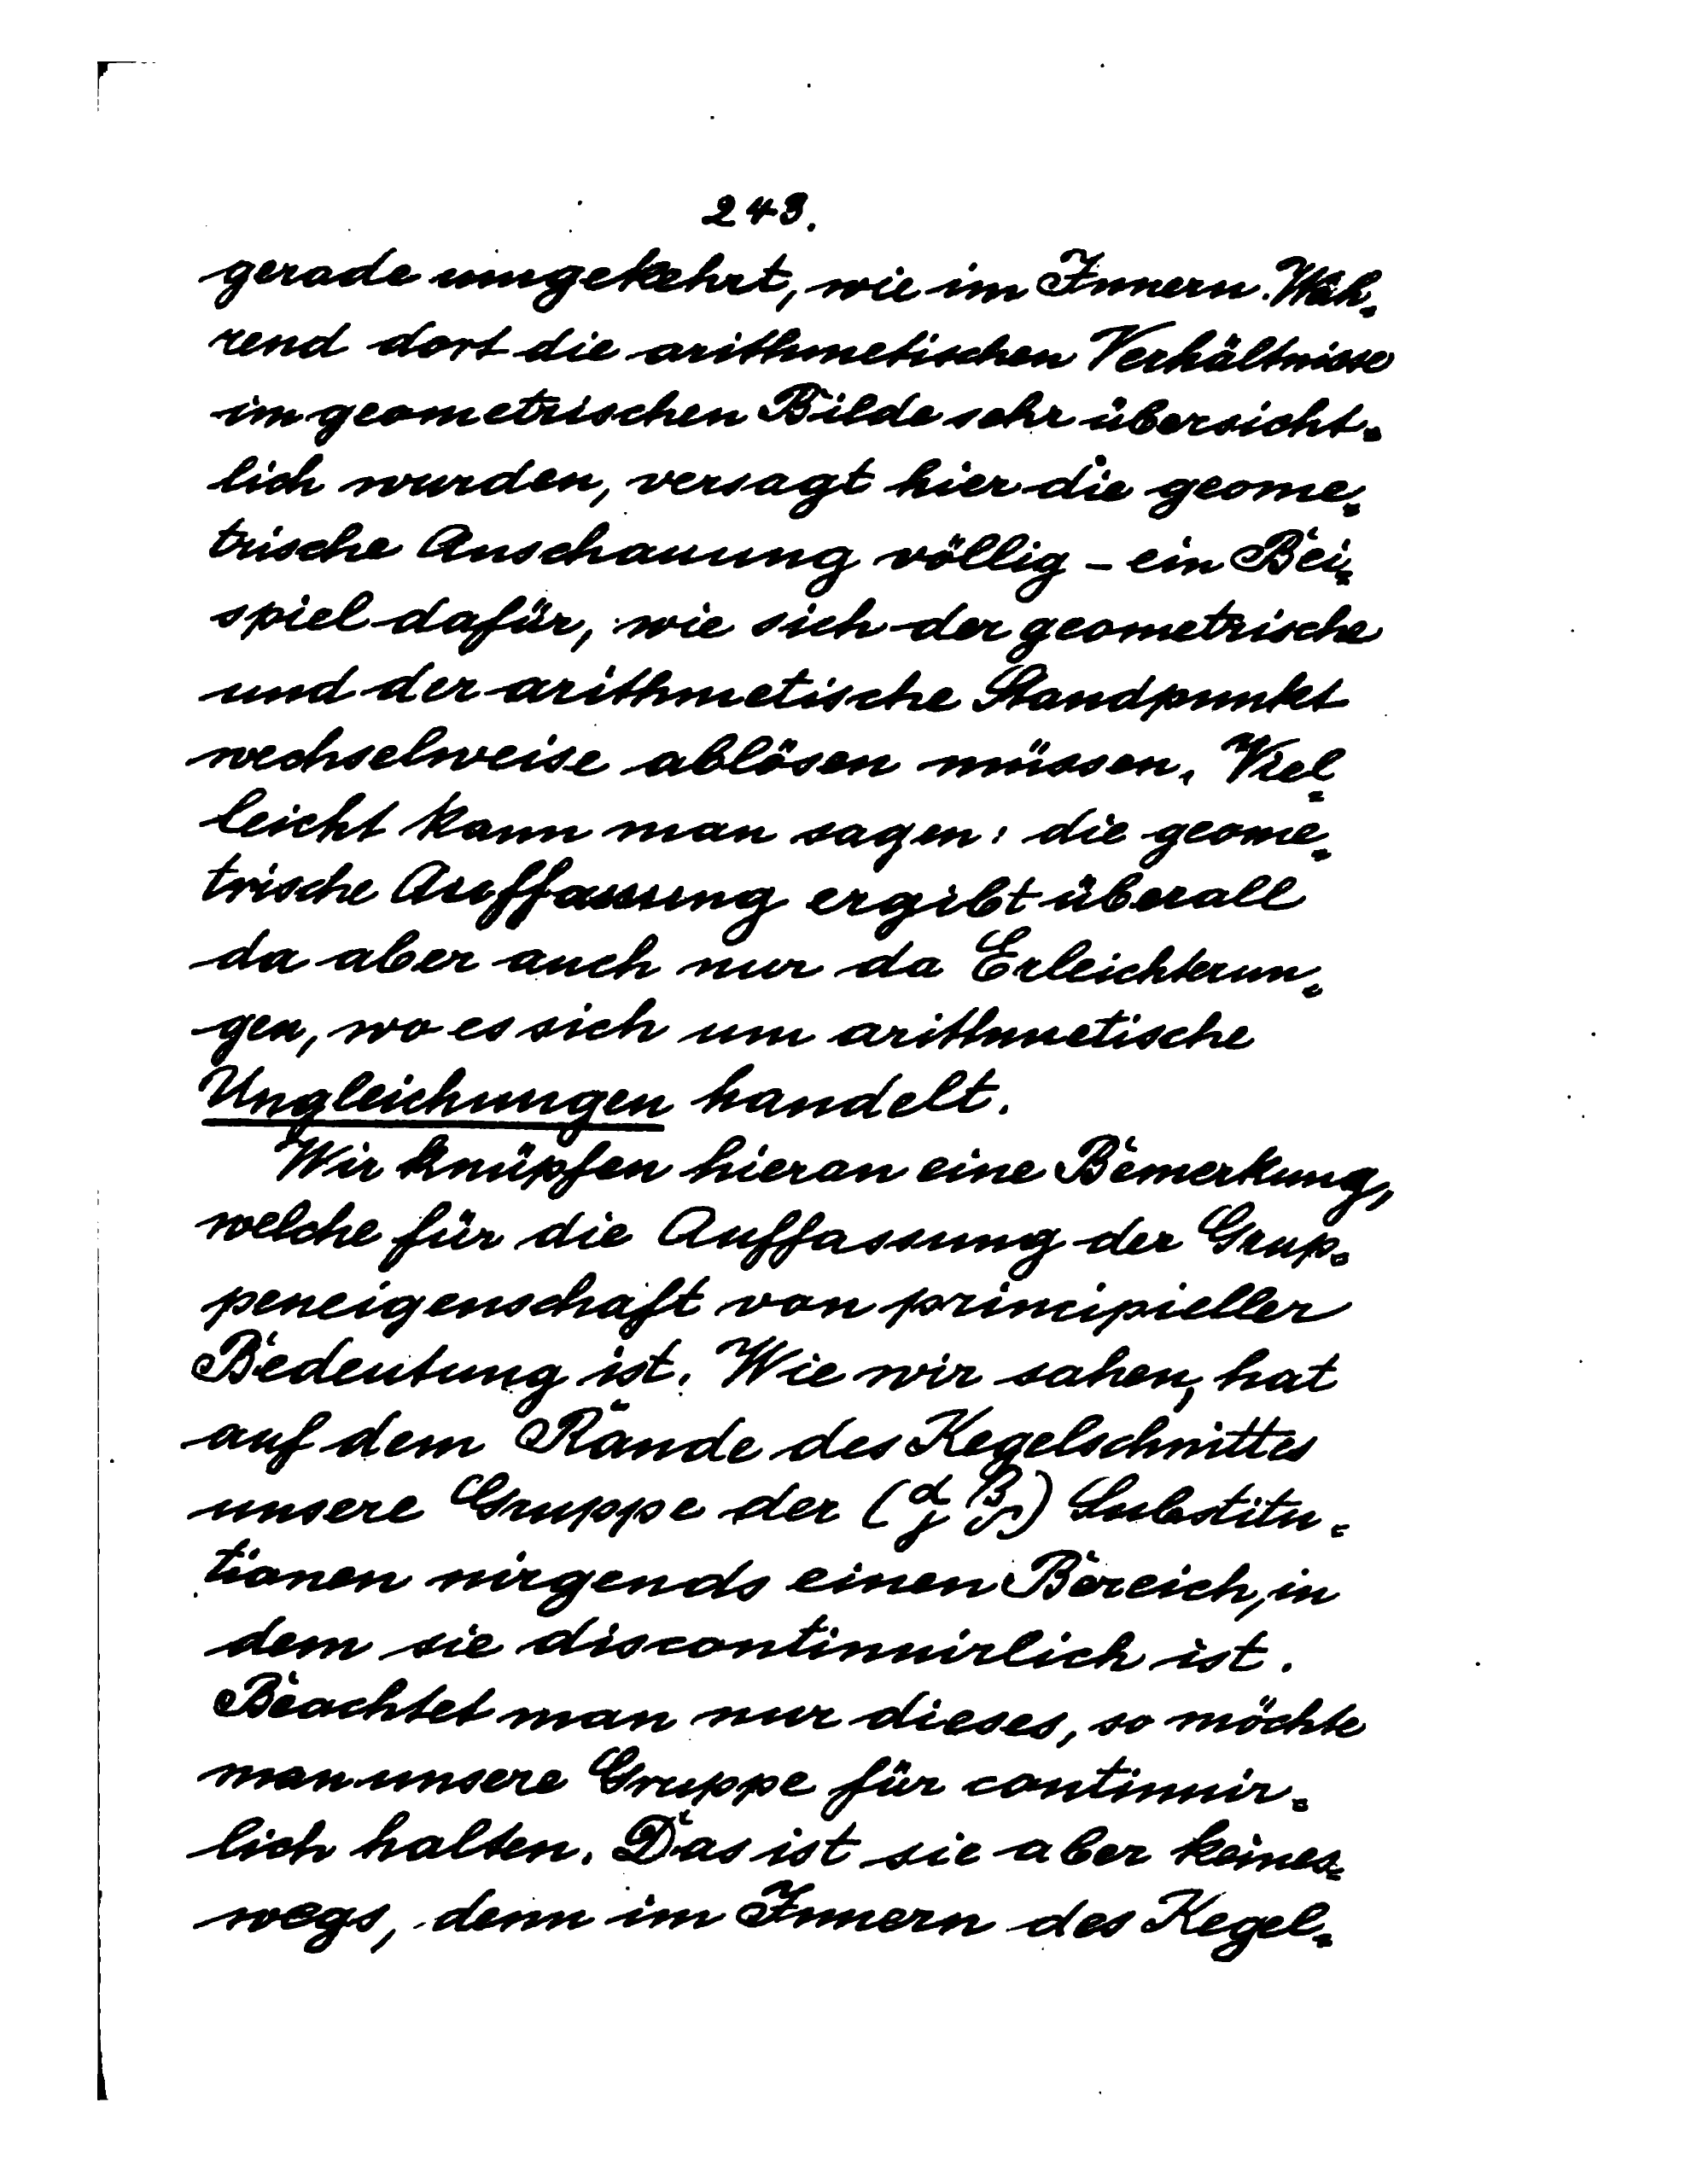 243.
gerade umgekehrt, wie im Innern. Wäh-
rend dort die arithmetischen Verhältnisse
im geometrischen Bilde sehr übersicht-
lich wurden, versagt hier die geome-
trische Anschauung völlig – ein Bei-
spiel dafür, wie sich der geometrische
und der arithmetische Standpunkt
wechselweise ablösen müssen. Viel-
leicht kann man sagen: die geome-
trische Auffassung ergibt überall
da aber auch nur da Erleichterun-
gen, wo es sich um arithmetische
Ungleichungen handelt.
Wir knüpfen hieran eine Bemerkung,
welche für die Auffassung der Grup-
peneigenschaft von principieller
Bedeutung ist. Wie wir sahen, hat
auf dem Rande des Kegelschnittes
unsere Gruppe der (α β γ δ) Substitu-
tionen nirgends einen Bereich, in
dem sie discontinuirlich ist.
Beachtet man nur dieses, so möchte
man unsere Gruppe für continuir-
lich halten. Das ist sie aber keines-
wegs, denn im Innern des Kegel-